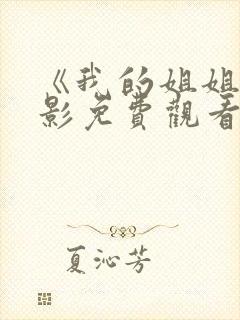 《我的姐姐
影免費觀看
夏沁芳